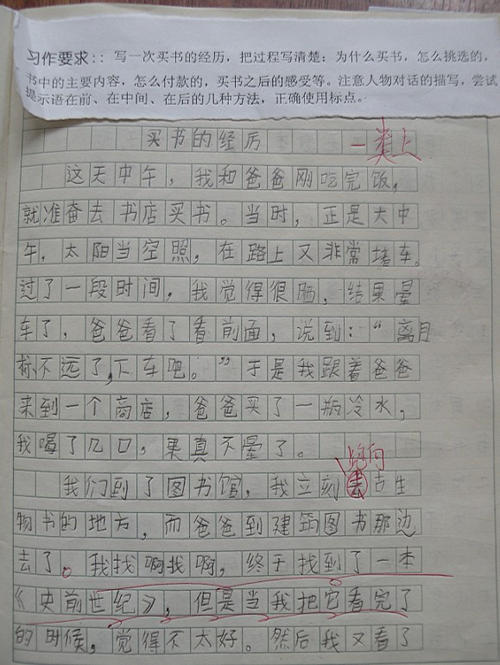 习作要求：：写一次买书的经历，把过程写清楚：为什么买书，怎么挑选的，
书中的主要内容，怎么付款的，买书之后的感受等。注意人物对话的描写，尝试
提示语在前、在中间、在后的几种方法，正确使用标点。
买书的经历
一类上
这天中午，我和爸爸刚吃完饭，
就准备去书店买书。当时，正是大中
午，太阳当空照，在路上又非常堵车。
过了一段时间，我觉得很晒，结果晕
车了，爸爸看了看前面，说到：“离目
标不远了，下车吧。”于是我跟着爸爸
来到一个商店，爸爸买了一瓶冷水，
我喝了几口，果真不晕了。
奔向
我们到了图书馆，我立刻去古生
物书的地方，而爸爸到建筑图书那边
去了。我找啊找啊，终于找到了一本
《史前世纪》，但是当我把它看完了
的时候，觉得不太好。然后我又看了